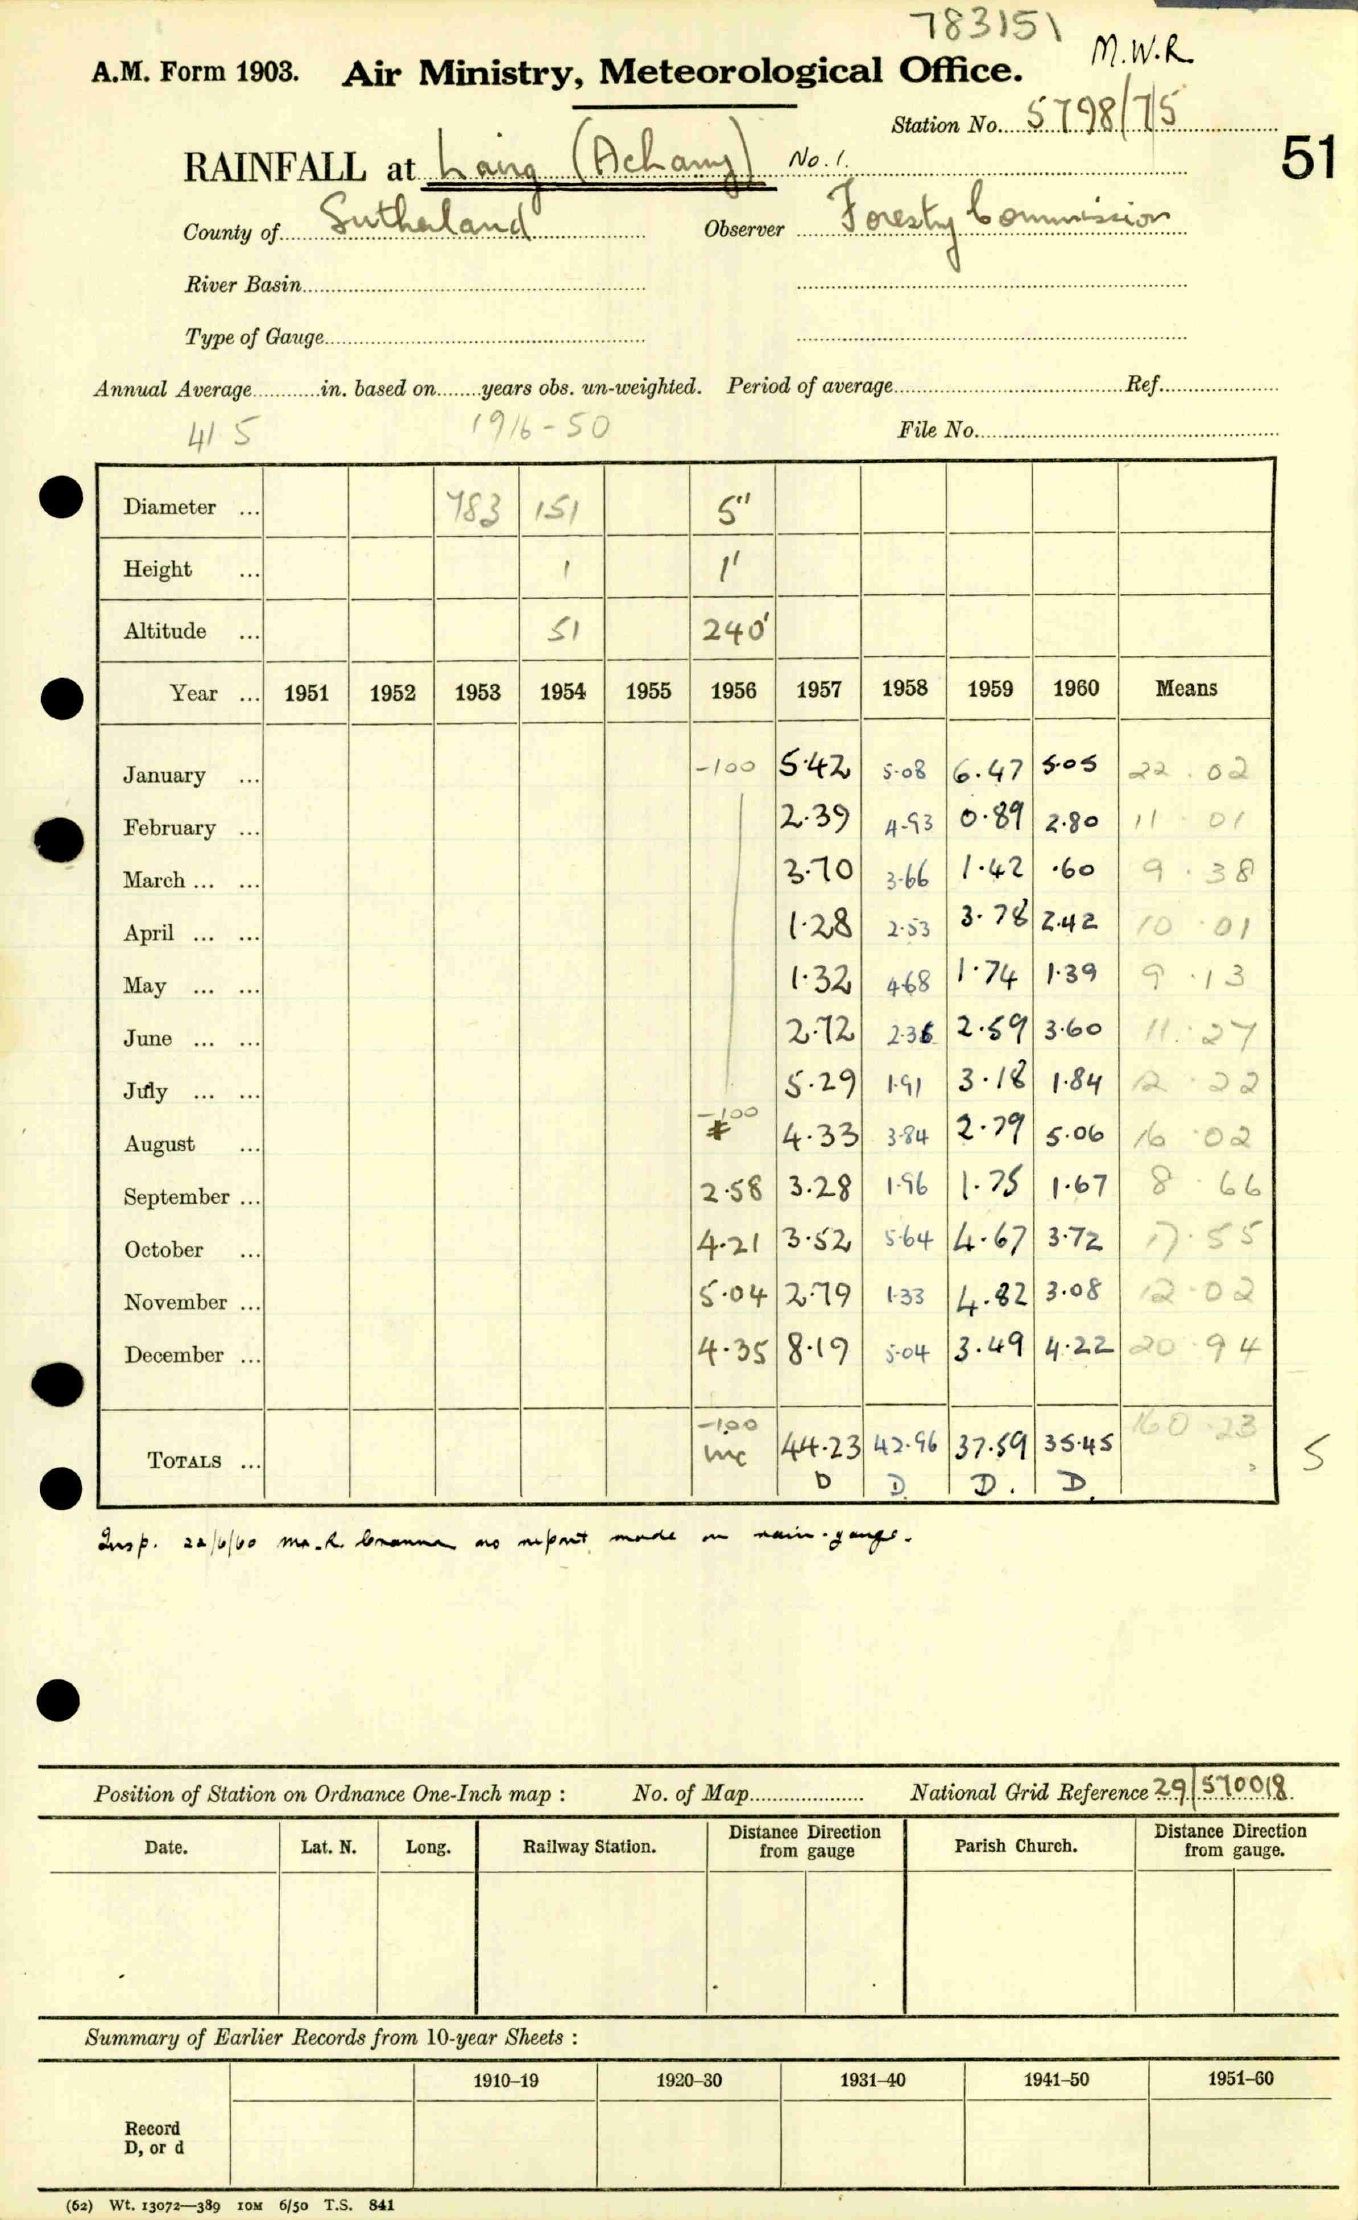 783151
M.W.R
A.M. Form 1903. Air Ministry, Meteorological Office.
Station No. 5798/7/5
51
RAINFALL at Lairg (Achany) No. 1.
County of Sutherland Observer Foresty Commission
River Basin
Type of Gauge
Annual Average in. based on years obs. un-weighted. Period of average Ref.
41 5 1916-50 File No.
Diameter ... 783 151 5"
Height ... 1 1'
Altitude ... 51 240'
Year ... 1951 1952 1953 1954 1955 1956 1957 1958 1959 1960 Means
January ... -100 5.42 5.08 6.47 5.05 22.02
February ... 2.39 4.93 0.89 2.80 11.01
March ... ... 3.70 3.66 1.42 .60 9.38
April ... ... 1.28 2.53 3.78 2.42 10.01
May ... ... 1.32 4.68 1.74 1.39 9.13
June ... ... 2.72 2.36 2.59 3.60 11.27
July ... ... 5.29 1.91 3.18 1.84 12.22
August ... -100 4.33 3.84 2.79 5.06 16.02
September ... 2.58 3.28 1.96 1.75 1.67 8.66
October ... 4.21 3.52 5.64 4.67 3.72 17.55
November ... 5.04 2.79 1.33 4.82 3.08 12.02
December ... 4.35 8.19 5.04 3.49 4.22 20.94
TOTALS ... -100 inc 44.23 42.96 37.59 35.45 160.23
D D. D. D. 5
Insp. 22/6/60 Mr. R. no report made on rain-gauge.
Position of Station on Ordnance One-Inch map : No. of Map National Grid Reference 29/570018
Date. Lat. N. Long. Railway Station. Distance Direction from gauge Parish Church. Distance Direction from gauge.
Summary of Earlier Records from 10-year Sheets :
1910–19 1920–30 1931–40 1941–50 1951–60
Record
D, or d
(62) Wt. 13072—389 10M 6/50 T.S. 841